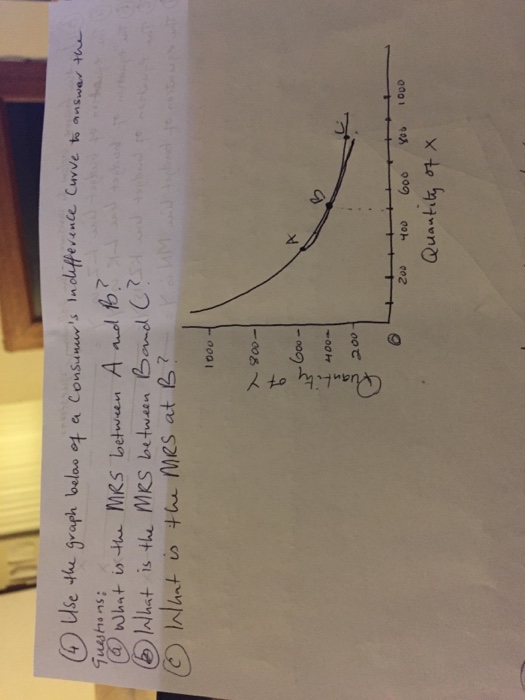 ④ Use the graph below of a Consumer's Indifference Curve to answer the
Questions:
ⓐ What is the MRS between A and B?
ⓑ What is the MRS between B and C?
ⓒ What is the MRS at B?
1000
800
600
400
200
0
Quantity
of
Y
A
B
C
200 400 600 800 1000
Quantity of X